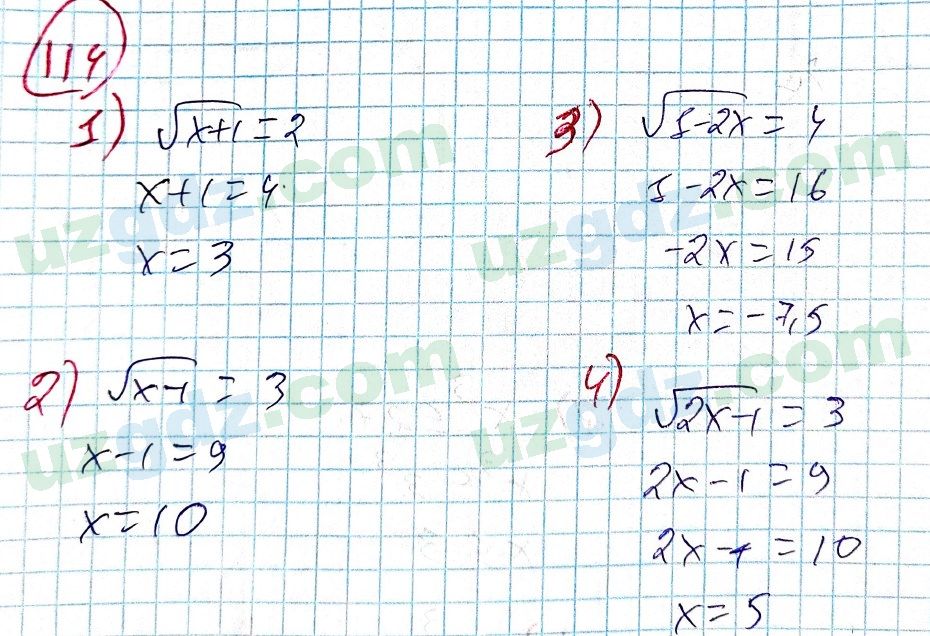 114
1) √x+1 = 2
x+1 = 4
x = 3
2) √x-1 = 3
x-1 = 9
x = 10
3) √1-2x = 4
1-2x = 16
-2x = 15
x = -7,5
4) √2x-1 = 3
2x-1 = 9
2x-1 = 10
x = 5
uzgdz.com
uzgdz.com
uzgdz.com
uzgdz.com